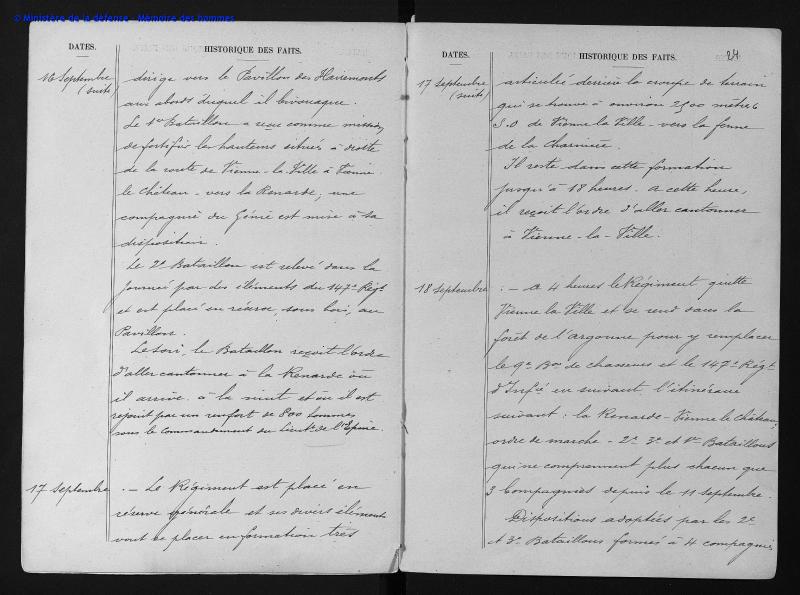 © Ministère de la défense - Mémoire des hommes
DATES.
HISTORIQUE DES FAITS.
16 Septembre
(suite)
dirige vers le Pavillon des
aux abords duquel il bivouaque.
Le 1er Bataillon a reçu comme mission
de fortifier les hauteurs situées à droite
de la route de Vienne-la-Ville à Vienne
le Château - vers la Renarde, une
compagnie du Génie est mise à sa
disposition.
Le 2e Bataillon est relevé dans la
journée par des éléments du 147e Régt
et est placé en réserve, sous bois, au
Pavillon.
Le soir, le Bataillon reçoit l'ordre
d'aller cantonner à la Renarde où
il arrive à la nuit et où il est
rejoint par un renfort de 800 hommes
sous le commandement du Lieutt de l'Epine.
17 septembre
. - Le Régiment est placé en
réserve générale et ses divers éléments
vont se placer en formation très
DATES.
HISTORIQUE DES FAITS.
24
17 septembre
(suite)
articulée derrière la croupe de terrain
qui se trouve à environ 2500 mètres
S.O de Vienne la Ville - vers la ferme
de la
Il reste dans cette formation
jusqu'à 18 heures. A cette heure,
il reçoit l'ordre d'aller cantonner
à Vienne-la-Ville.
18 septembre
. - A 4 heures le Régiment quitte
Vienne la Ville et se rend dans la
forêt de l'Argonne pour y remplacer
le 9e Bon de chasseurs et le 147e Régt
d'Infie en suivant l'itinéraire
suivant : la Renarde - Vienne le Château,
ordre de marche - 2e 3e et 1er Bataillons
qui ne comprennent plus chacun que
3 Compagnies depuis le 11 septembre.
Dispositions adoptées par les 2e
et 3e Bataillons formés à 4 compagnies